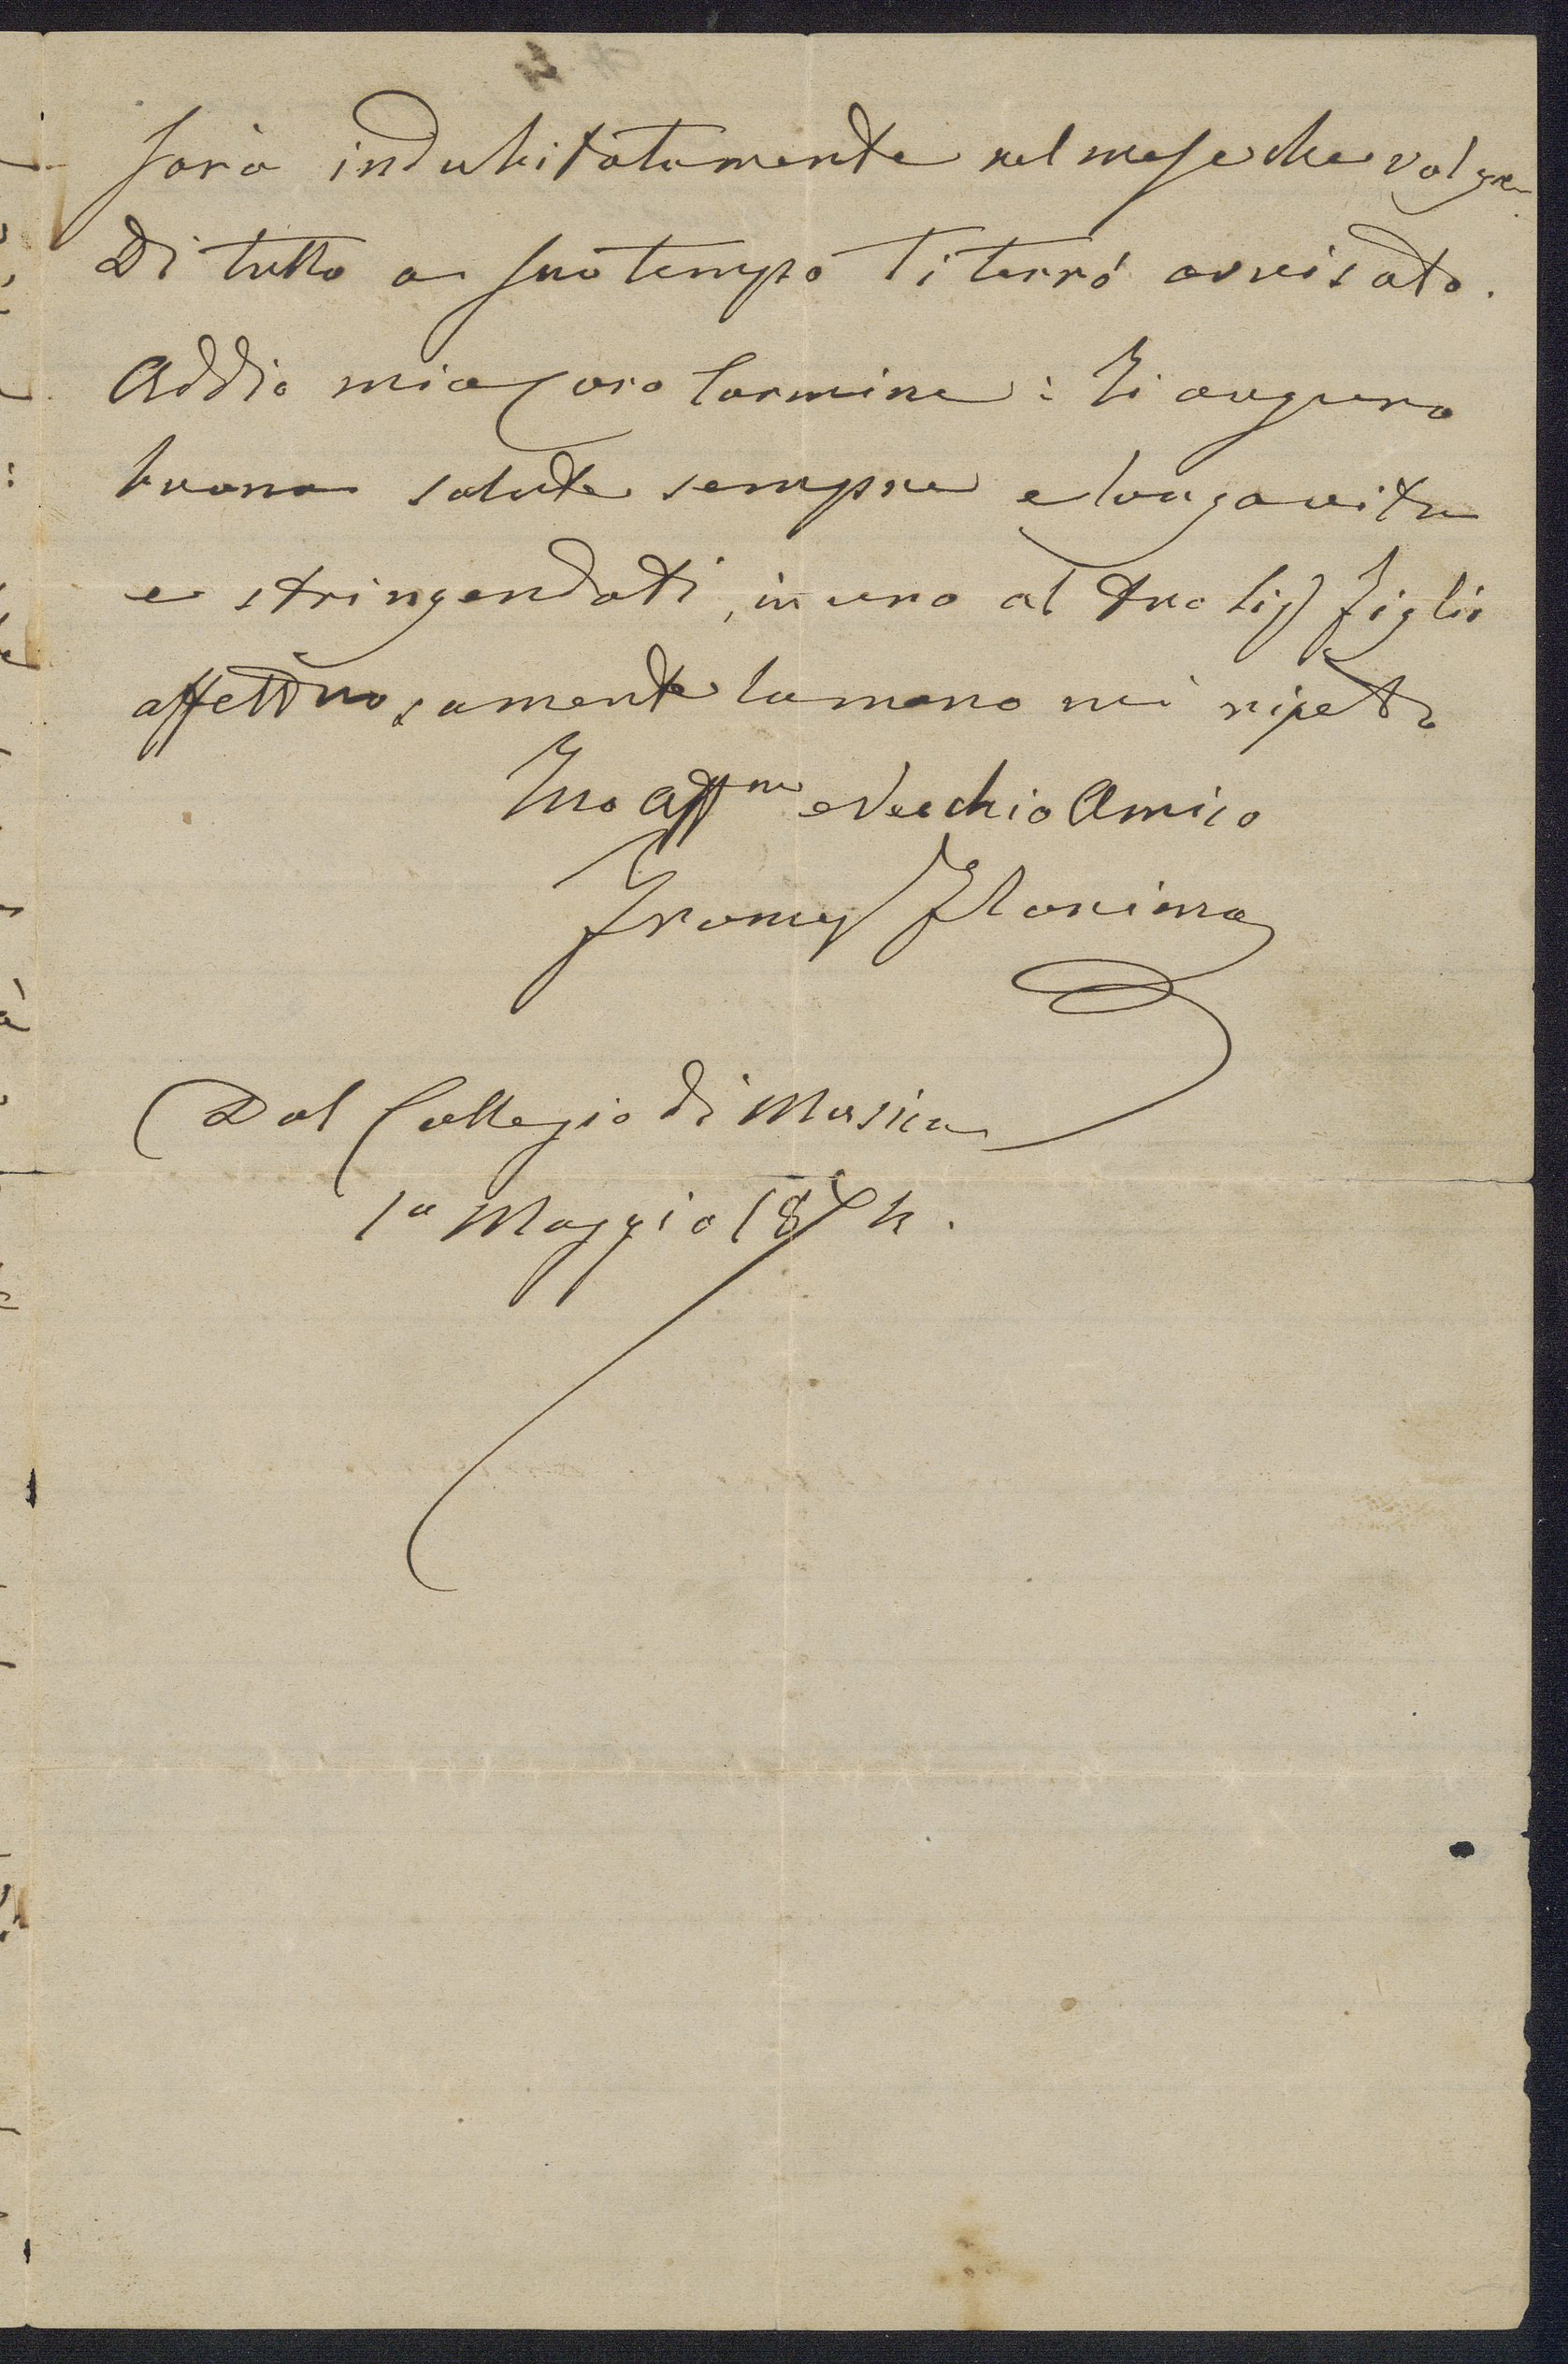 sarà indubitatamente nel mese che volge.
Di tutto a suo tempo Ti terrò avvisato.
Addio mio Caro Carmine: Ti auguro
buona salute sempre e longa vita
e stringendoti, in uno al tuo Sig figlio
affettuosamente la mano mi ripeto
Tuo Aff mo e Vecchio Amico
Franco Florimo
Dal Collegio di Musica
1o Maggio 187